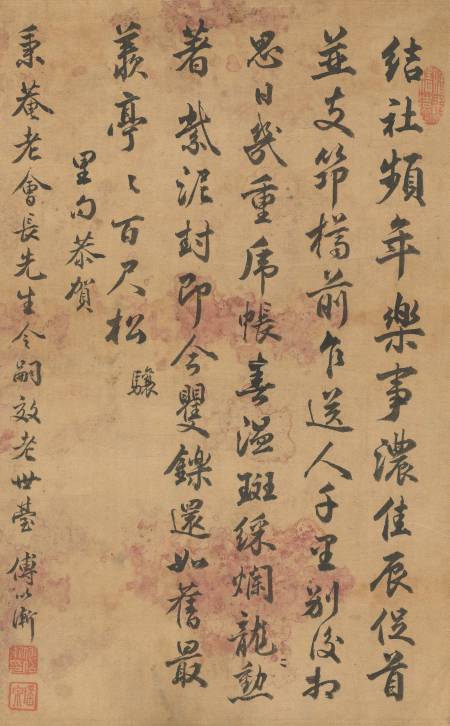 結社頻年樂事濃佳辰促首
並支筇樽前乍送人千里別後相
思日幾重虎帳春溫斑綵爛龍勲
著紫泥封即今矍鑠還如舊最
羨亭〻百尺松 驤
里句恭賀
秉菴老會長先生令嗣效老世臺 傅以漸